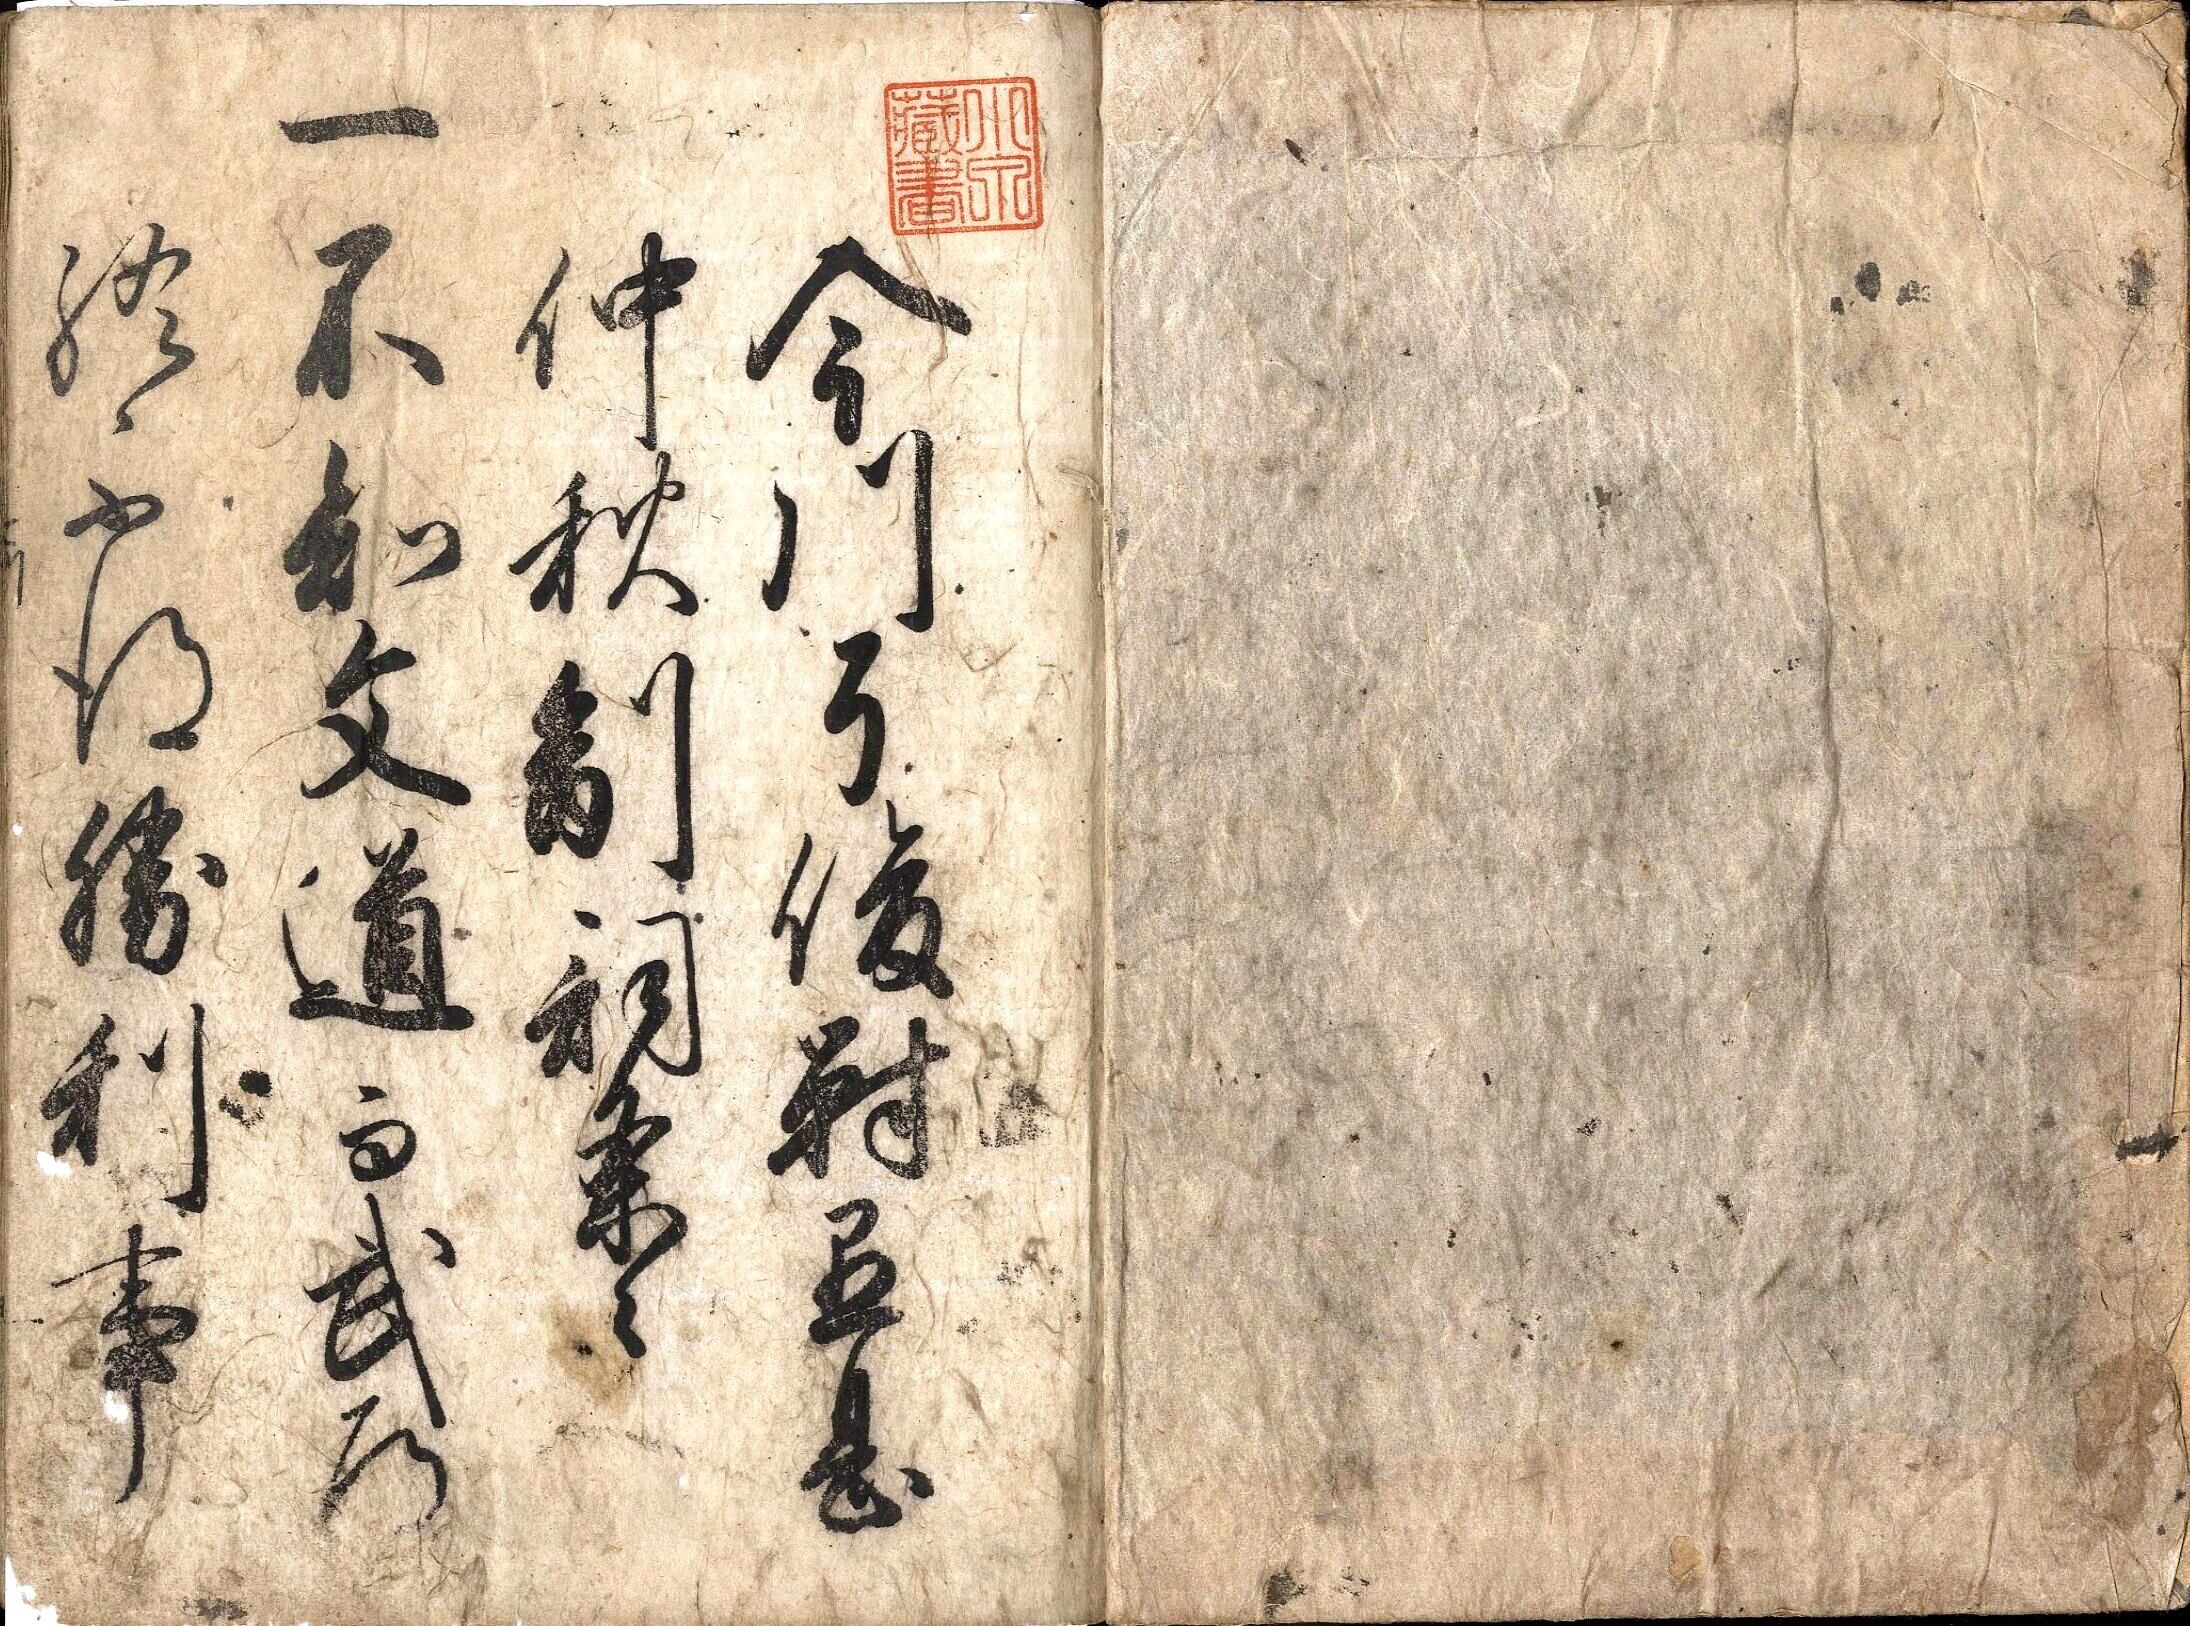 小泉
藏書
今川了俊對愚息
仲秋制詞条々
一不知文道而武道
終不得勝利事